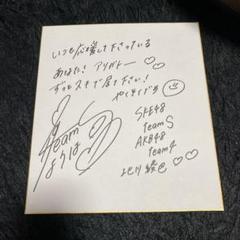 いつも応援して下さっている
あなた！アリガトー
ずっとスキで居て下さい！
やくそくだョ
SKE48
teamS
AKB48
team4
team
よりは